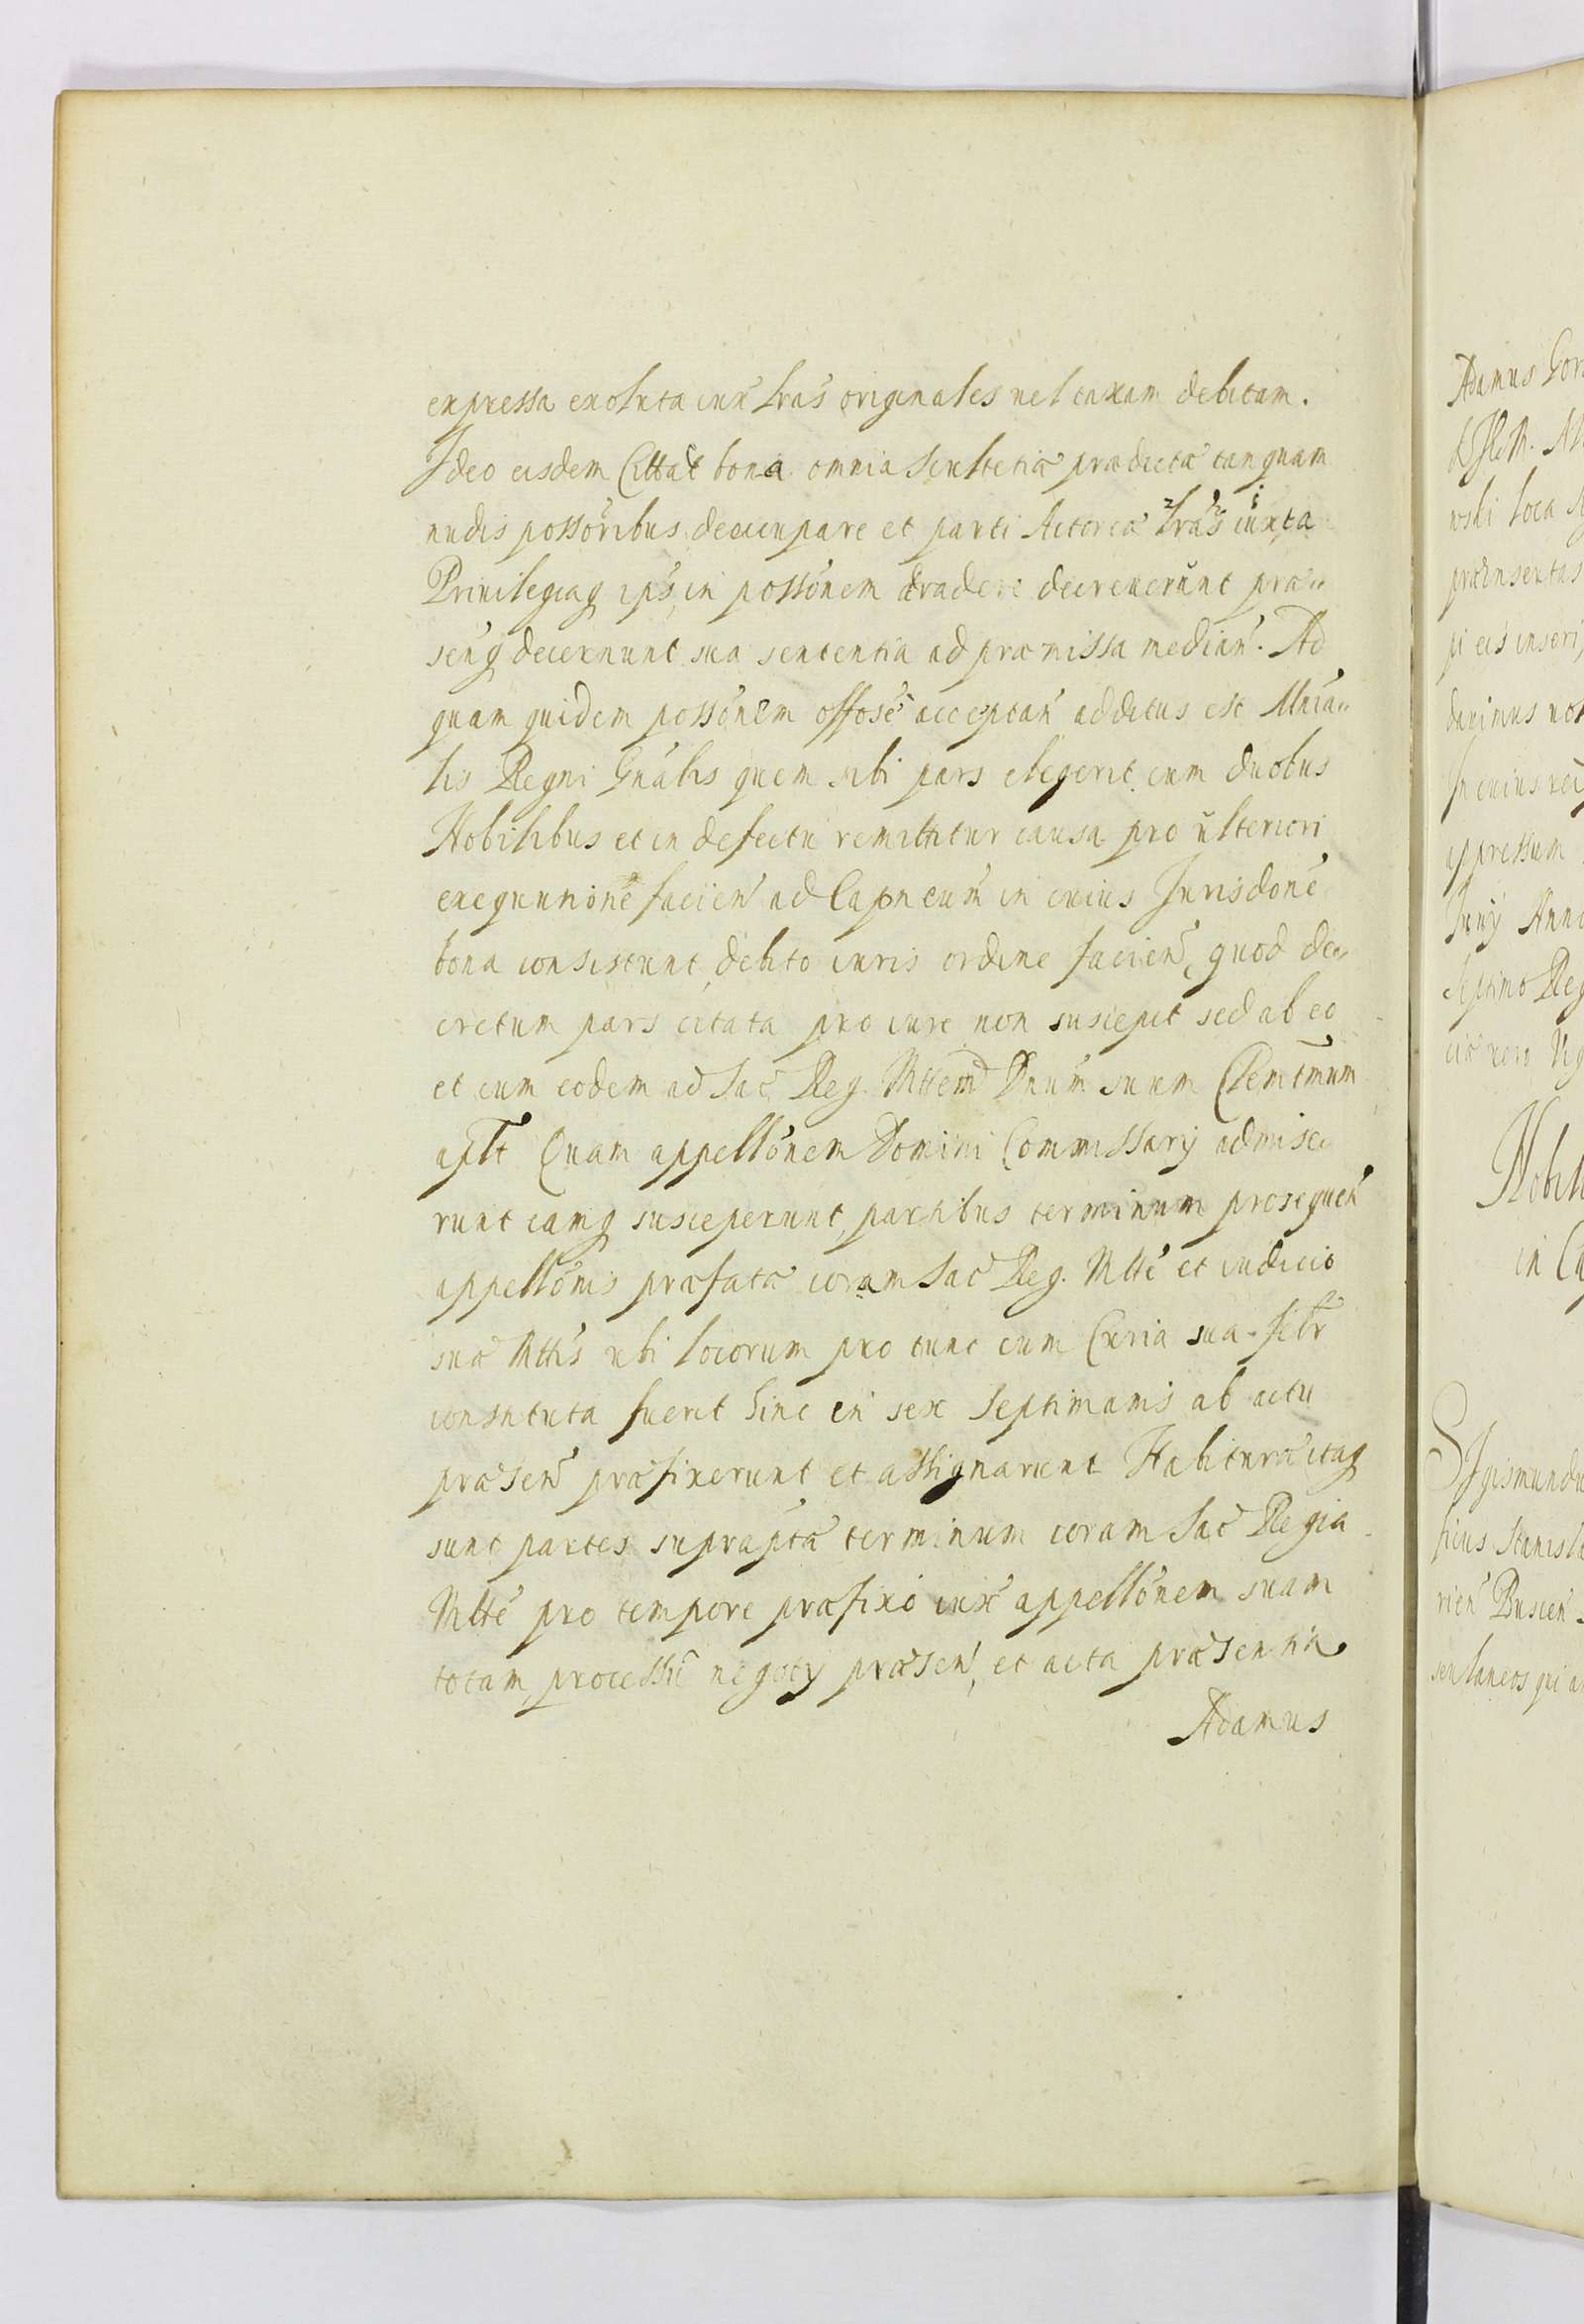 expressa exoluta iux̃ lr̃as originales uel taxam debitam.
Ideo eisdem Cittat̃ bona omnia Scultetiæ prædictæ tanquam
nudis possor̃ibus deoccupare et parti Actoreæ lr̃as iuxta
Privilegiaq ips̃ in possõnem tradere decreverunt præ„
senq̃ decernunt sua sententia ad præmissa median̄. Ad
quam quidem possõnem offose acceptan̄ additus est Mnia„
lis Regni Gnãlis quem sibi pars elegerit cum duobus
Nobilibus et in defectu remittitur causa pro ulteriori
exequutionẽ facien̄ ad Capneum̃ in cuius Jurisdonẽ
bona consistunt debito iuris ordine facien̄, quod de„
cretum pars citata pro iure non suscepit sed ab eo
et cum eodem ad Sac̃ Reg. Mttem̃ Dnum̃ suum Clemtm̃um
aplt̃ Quam appellõnem Domini Commissarÿ admise„
runt eamq susceperunt, partibus terminum prosequen̄
appellõnis præfatæ coram Sac̃ Reg. Mttẽ et iudicio
suæ Mttis̃ ubi locorum pro tunc cum Curia sua felr̃
constituta fuerit hinc in sex Septimanis ab actu
præsen̄ præfixerunt et assignarunt Habituræ itaq
sunt partes suprapta terminum coram Sac̃ Regia
Mttẽ pro tempore præfixo iux̃ appellõnem suam
totam, processũ negotÿ præsen̄, et acta præsentia
Adamus
Adamus
wski loca
præinsertas
In cuius rei
Junÿ Anno
Septimo Reg
in
Sigismundu